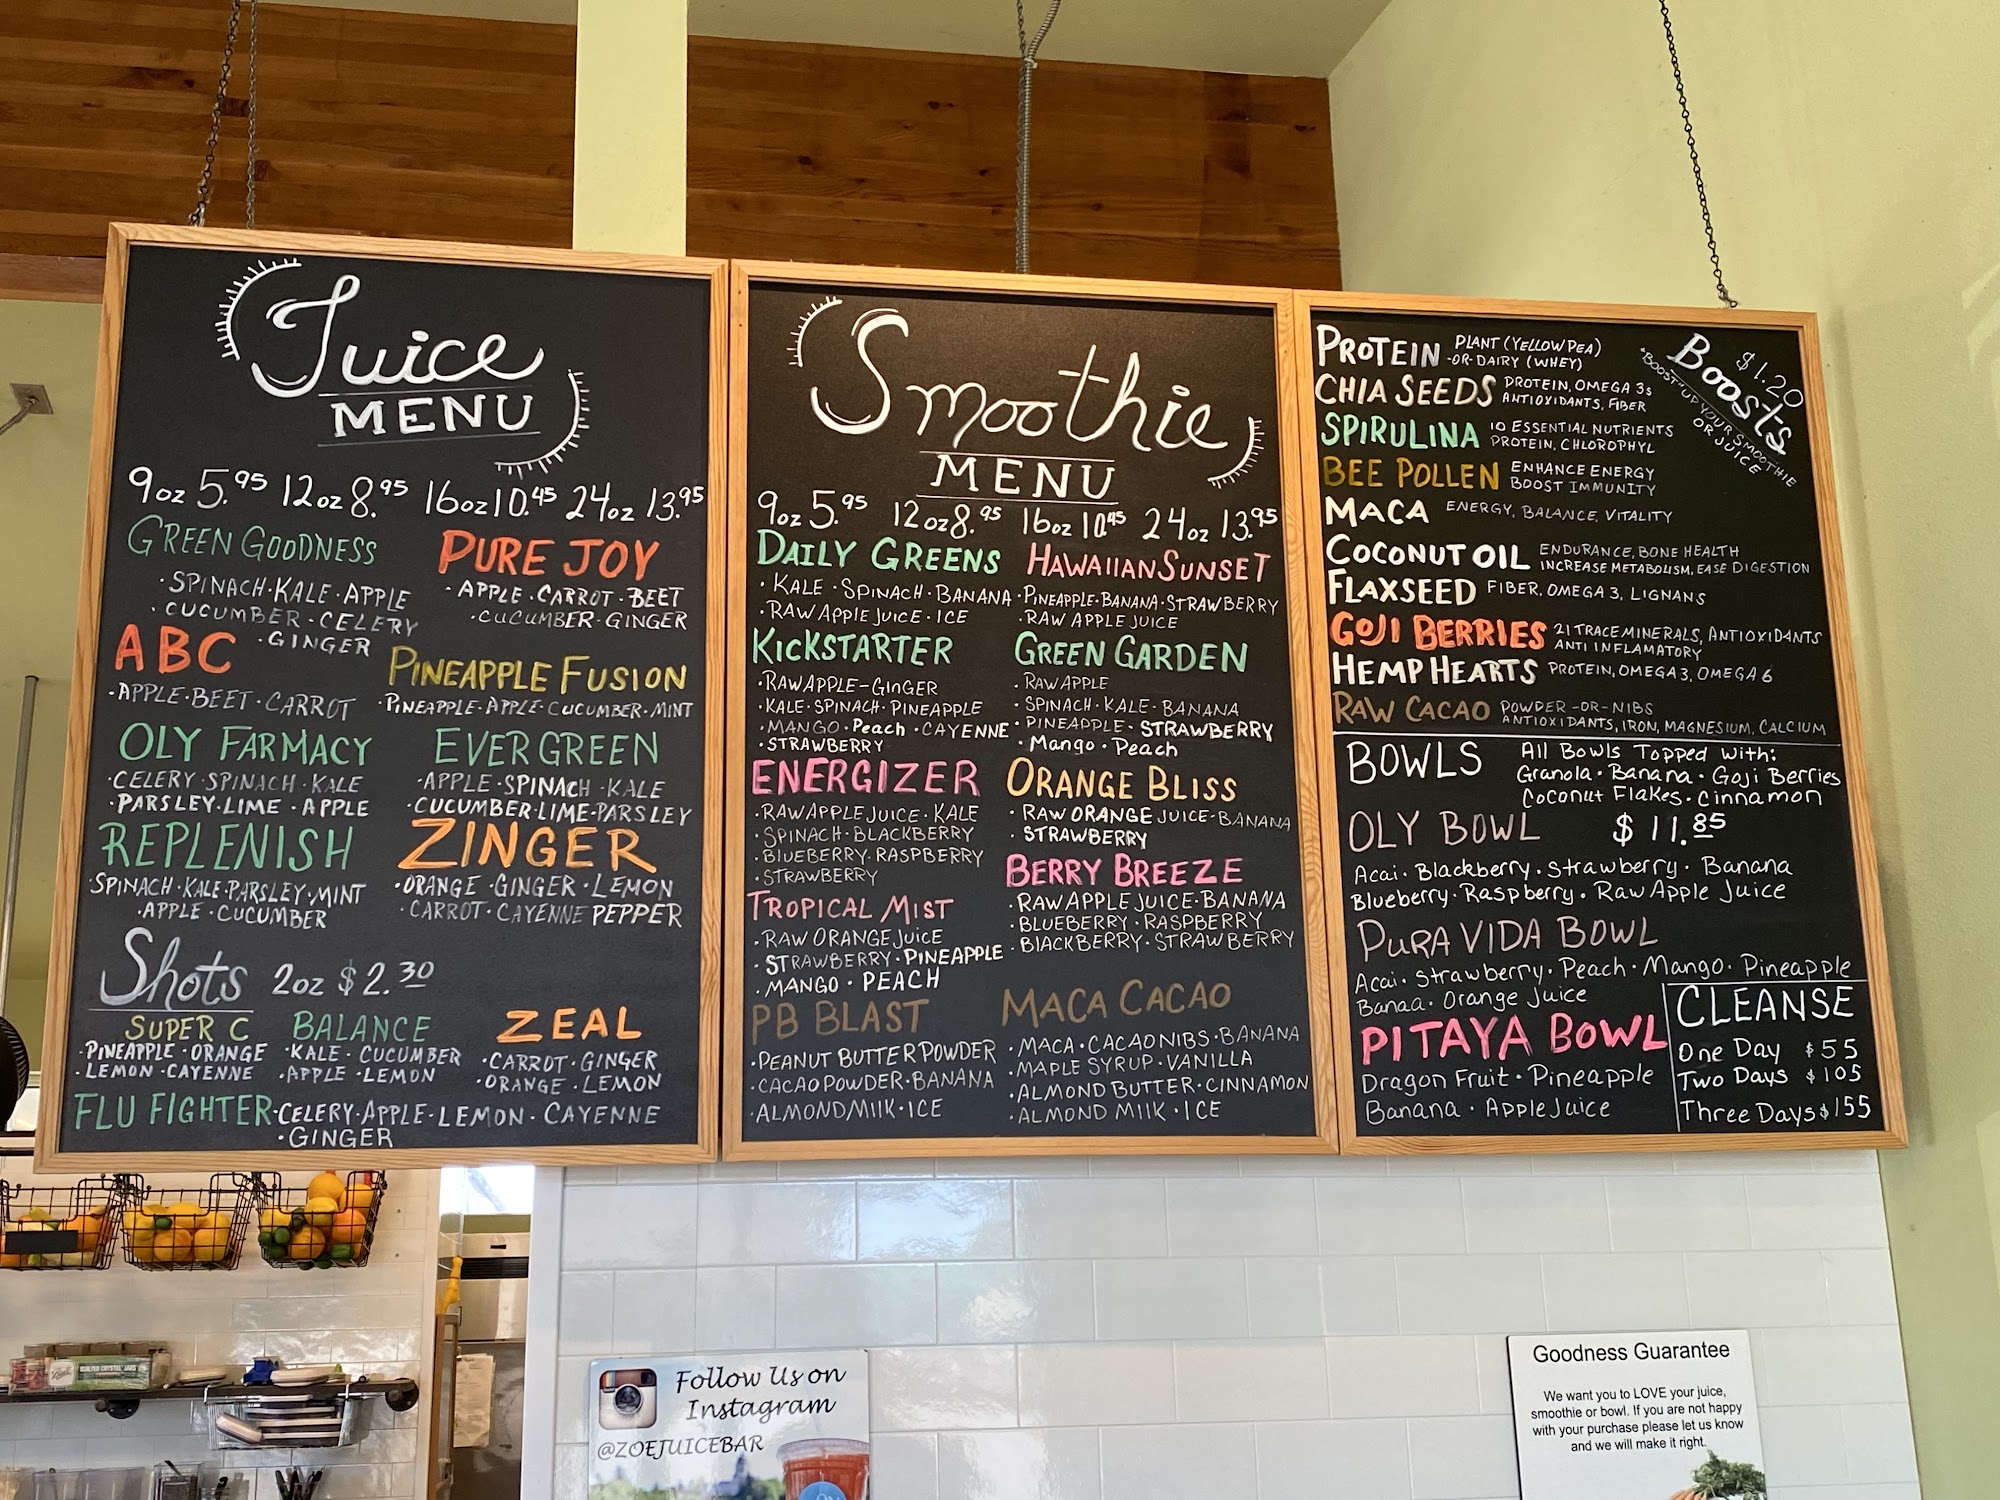 Juice
MENU
9oz 5.95 12oz 8.95 16oz 10.45 24oz 13.95
GREEN GOODNESS
· SPINACH · KALE · APPLE
· CUCUMBER · CELERY
· GINGER
PURE JOY
· APPLE · CARROT · BEET
· CUCUMBER · GINGER
ABC
· APPLE · BEET · CARROT
PINEAPPLE FUSION
· PINEAPPLE · APPLE · CUCUMBER · MINT
OLY FARMACY
· CELERY · SPINACH · KALE
· PARSLEY · LIME · APPLE
EVERGREEN
· APPLE · SPINACH · KALE
· CUCUMBER · LIME · PARSLEY
REPLENISH
· SPINACH · KALE · PARSLEY · MINT
· APPLE · CUCUMBER
ZINGER
· ORANGE · GINGER · LEMON
· CARROT · CAYENNE PEPPER
Shots 2oz $2.30
SUPER C
· PINEAPPLE · ORANGE
· LEMON · CAYENNE
BALANCE
· KALE · CUCUMBER
· APPLE · LEMON
ZEAL
· CARROT · GINGER
· ORANGE · LEMON
FLU FIGHTER · CELERY · APPLE · LEMON · CAYENNE
· GINGER
Smoothie
MENU
9oz 5.95 12oz 8.95 16oz 10.45 24oz 13.95
DAILY GREENS
· KALE · SPINACH · BANANA
· RAW APPLE JUICE · ICE
HAWAIIAN SUNSET
· PINEAPPLE · BANANA · STRAWBERRY
· RAW APPLE JUICE
KICKSTARTER
· RAW APPLE - GINGER
· KALE · SPINACH · PINEAPPLE
· MANGO · Peach · CAYENNE
· STRAWBERRY
GREEN GARDEN
· RAW APPLE
· SPINACH · KALE · BANANA
· PINEAPPLE · STRAWBERRY
· Mango · Peach
ENERGIZER
· RAW APPLE JUICE · KALE
· SPINACH · BLACKBERRY
· BLUEBERRY · RASPBERRY
· STRAWBERRY
ORANGE BLISS
· RAW ORANGE JUICE · BANANA
· STRAWBERRY
BERRY BREEZE
· RAW APPLE JUICE · BANANA
· BLUEBERRY · RASPBERRY
· BLACKBERRY · STRAWBERRY
TROPICAL MIST
· RAW ORANGE JUICE
· STRAWBERRY · PINEAPPLE
· MANGO · PEACH
PB BLAST
· PEANUT BUTTER POWDER
· CACAO POWDER · BANANA
· ALMOND MILK · ICE
MACA CACAO
· MACA · CACAO NIBS · BANANA
· MAPLE SYRUP · VANILLA
· ALMOND BUTTER · CINNAMON
· ALMOND MILK · ICE
Boosts $1.20
"BOOST" UP YOUR SMOOTHIE
OR JUICE
PROTEIN PLANT (YELLOW PEA)
-OR- DAIRY (WHEY)
CHIA SEEDS PROTEIN, OMEGA 3s
ANTIOXIDANTS, FIBER
SPIRULINA 10 ESSENTIAL NUTRIENTS
PROTEIN, CHLOROPHYL
BEE POLLEN ENHANCE ENERGY
BOOST IMMUNITY
MACA ENERGY, BALANCE, VITALITY
COCONUT OIL ENDURANCE, BONE HEALTH
INCREASE METABOLISM, EASE DIGESTION
FLAXSEED FIBER, OMEGA 3, LIGNANS
GOJI BERRIES 21 TRACE MINERALS, ANTIOXIDANTS
ANTI INFLAMATORY
HEMP HEARTS PROTEIN, OMEGA 3, OMEGA 6
RAW CACAO POWDER -OR- NIBS
ANTIOXIDANTS, IRON, MAGNESIUM, CALCIUM
BOWLS All Bowls Topped with:
Granola · Banana · Goji Berries
Coconut Flakes · Cinnamon
OLY BOWL $11.85
Acai · Blackberry · Strawberry · Banana
Blueberry · Raspberry · Raw Apple Juice
PURA VIDA BOWL
Acai · Strawberry · Peach · Mango · Pineapple
Banaa · Orange Juice
PITAYA BOWL
Dragon Fruit · Pineapple
Banana · Apple Juice
CLEANSE
One Day $55
Two Days $105
Three Days $155
Follow Us on
Instagram
@ZOEJUICEBAR
Goodness Guarantee
We want you to LOVE your juice,
smoothie or bowl. If you are not happy
with your purchase please let us know
and we will make it right.